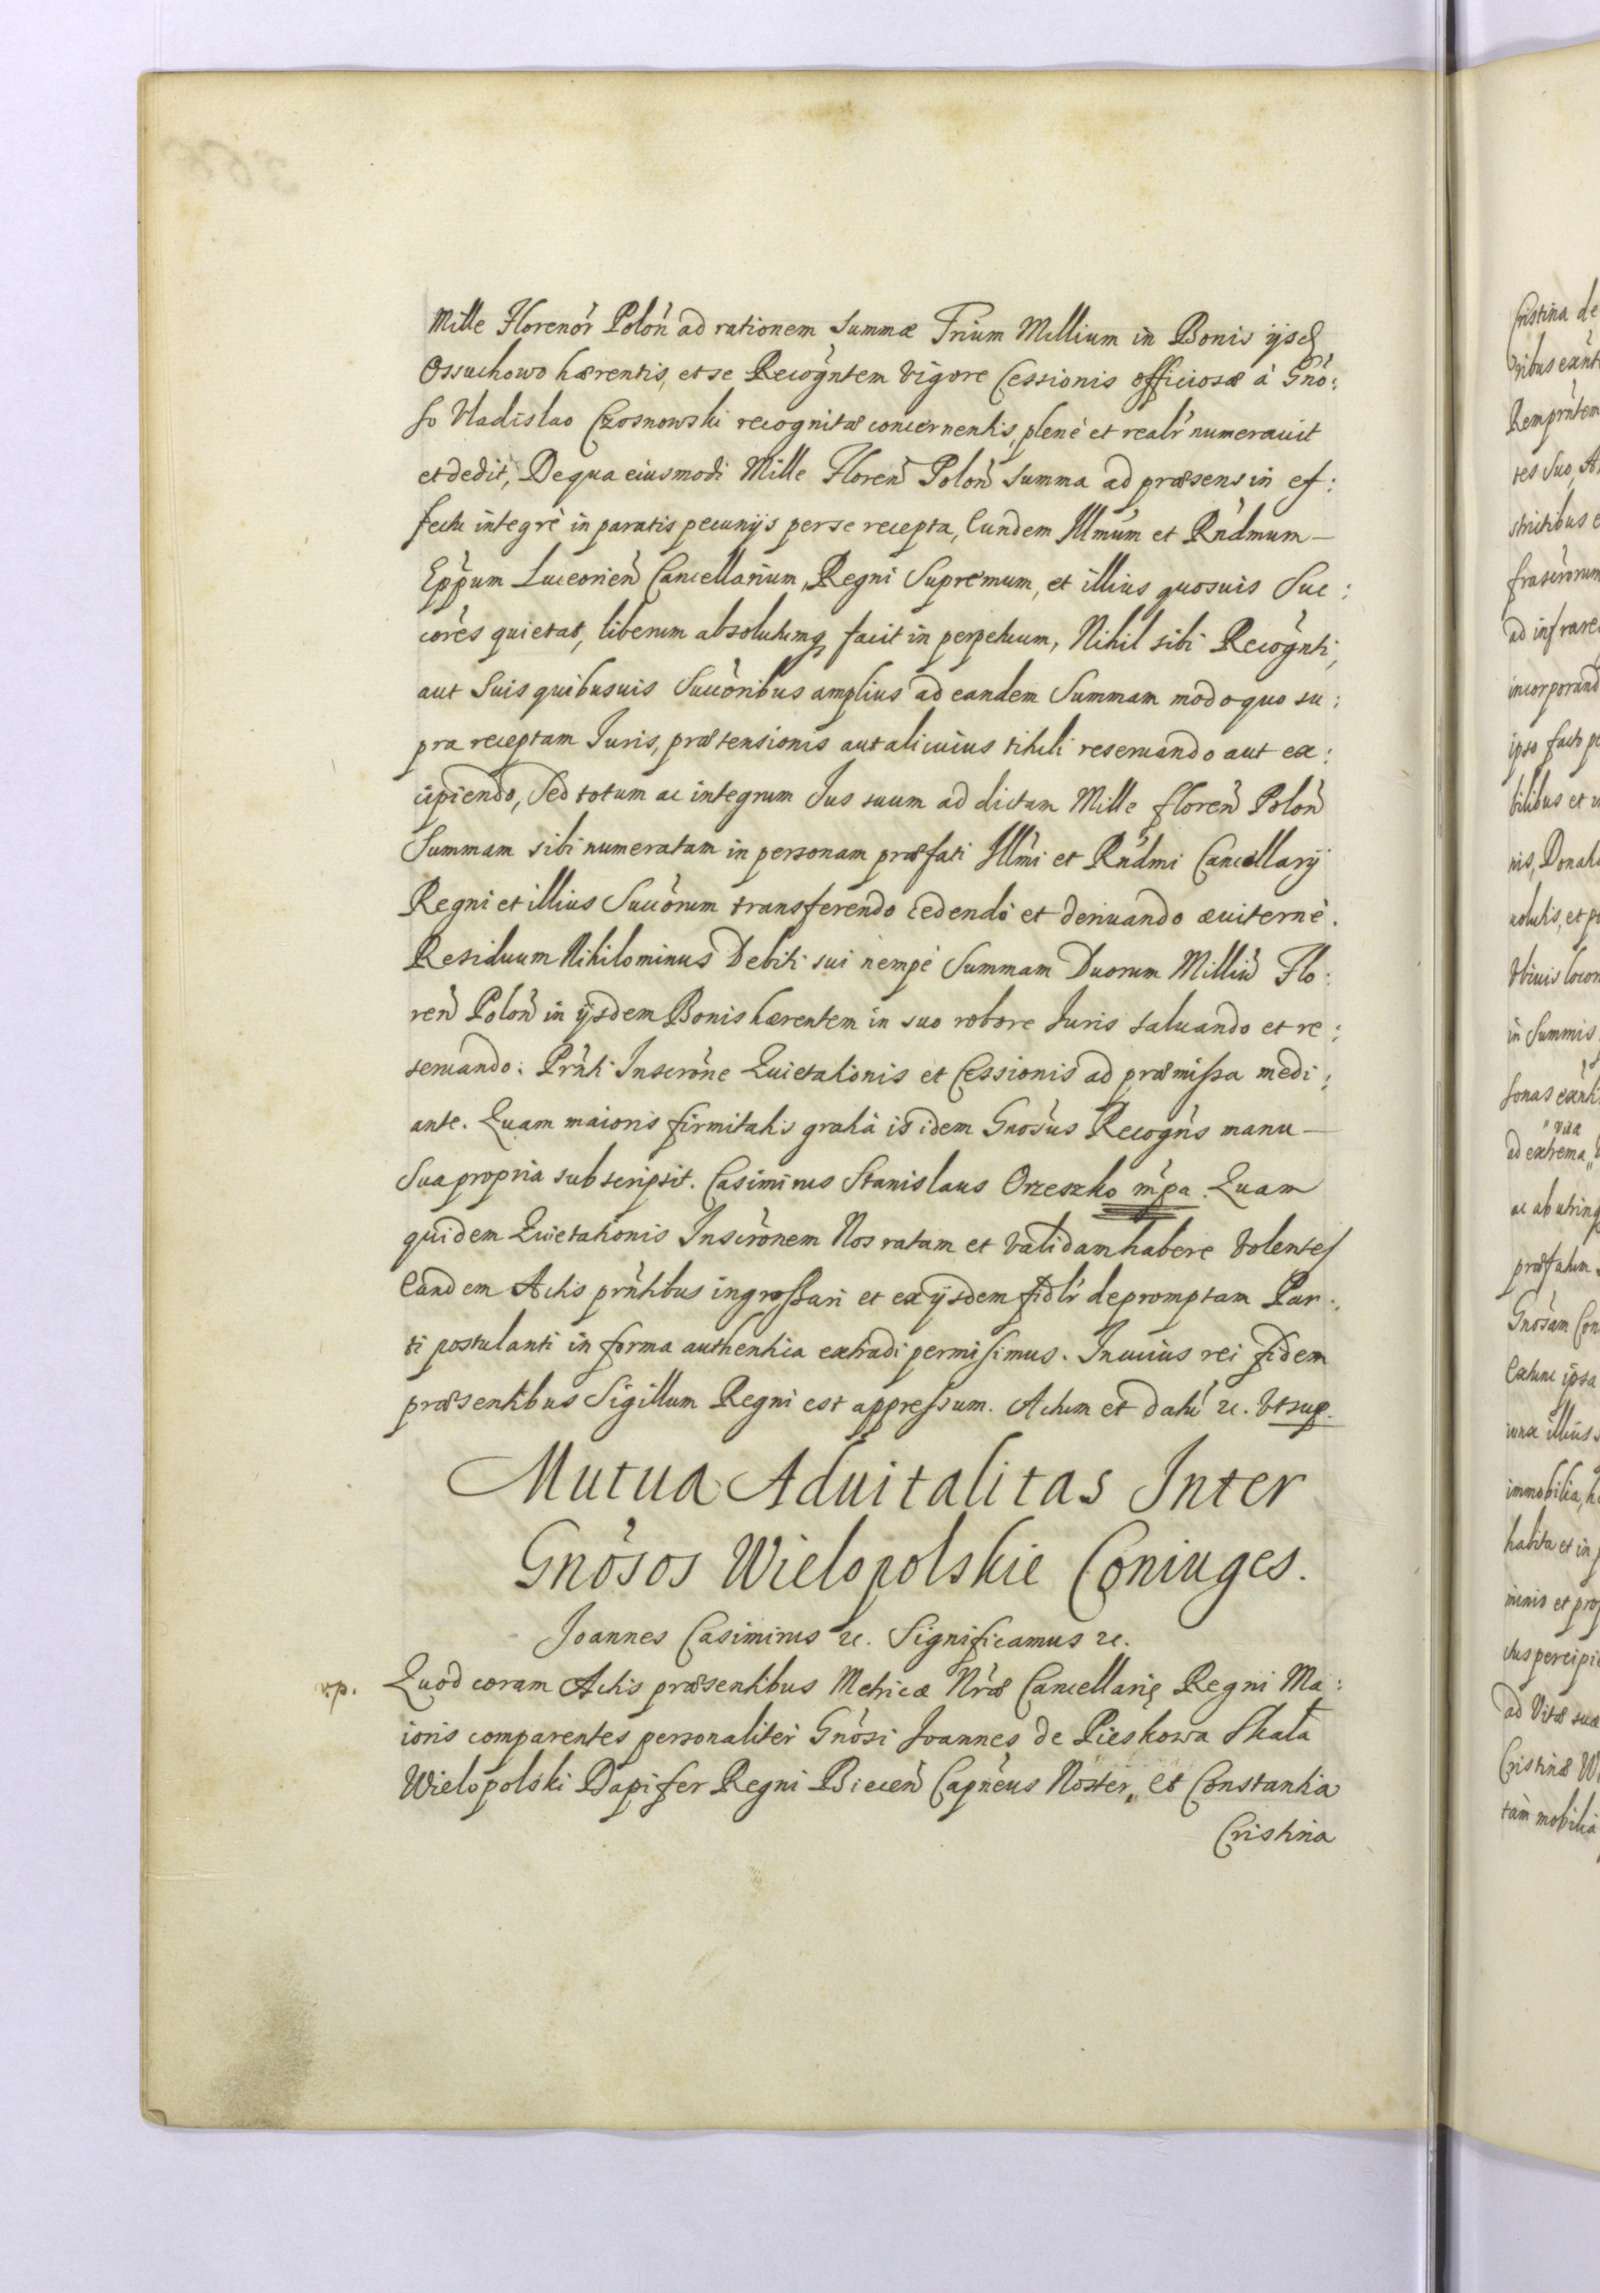 Mille Florenor̃ Poloñ ad rationem Summæ Trium Millium in Bonis ijsd
Ossuchowo hærentis, et se Recogñtem Vigore Cessionis officiosæ à Gño:
so Vladislao Czosnowski recognitæ concernentis, plenè et realr̃ numerauit
et dedit, De qua eiusmodi Mille Floreñ Poloñ Summa ad præsens in ef:
fectu integrè in paratis pecunijs per se recepta, Eundem Illm̃um et Rñdmum
Epp̃um Luceorieñ Cancellarium Regni Supremum, et illius quosuis Suc:
cores̃ quietat, liberum absolutumq, facit in perpetuum, Nihil sibi Recogñti,
aut Suis quibusuis Succõribus amplius ad eandem Summam modo quo su:
pra receptam Iuris, prætensionis aut alicuius tituli reseruando aut ex:
cipiendo, Sed totum ac integrum Ius suum ad dictam Mille floreñ Poloñ
Summam sibi numeratam in personam præfati Illm̃i et Rñdmi Cancellarij
Regni et illius Succõrum transferendo cedendo et deriuando æuiternè.
Residuum Nihilominus Debiti sui nempè Summam Duorum Milliũ Flo:
reñ Poloñ in ijsdem Bonis hærentem in suo robore Iuris saluando et re:
seruando. Prñti Inscrõne Quietationis et Cessionis ad præmissa medi:
ante. Quam maioris firmitatis gratiâ is idem Gnõsus Recogñs manu
Sua propria subscripsit. Casimirus Stanislaus Orzeszko mp̃a. Quam
quidem Quietationis Inscrõnem Nos ratam et Validam habere Volentes
Eandem Actis prñtibus ingrossari et ex ijsdem fidlr̃ depromptam Par:
ti postulanti in forma authentica extradi permisimus. In cuius rei fidem
præsentibus Sigillum Regni est appressum. Actum et datũ &c. Vt sup.
Mutua Aduitalitas Inter
Gnõsos Wielopolskie Coniuges.
Joannes Casimirus &c. Significamus &c.
v.p. Quod coram Actis præsentibus Metricæ Nr̃æ Cancellariȩ Regni Ma:
ioris comparentes personaliter Gnõsi Joannes de Pieskowa Skała
Wielopolski Dapifer Regni Bieceñ Capñeus Noster, et Constantia
Cristina